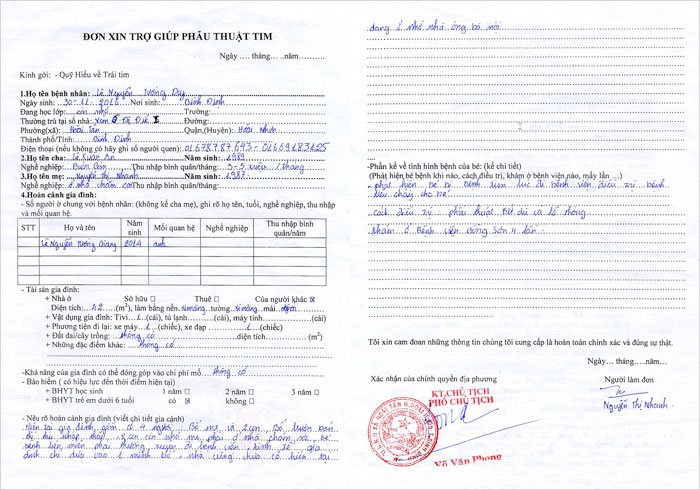 ĐƠN XIN TRỢ GIÚP PHẪU THUẬT TIM
Ngày .... tháng... ..năm.........
Kính gởi: - Quỹ Hiểu về Trái tim
1.Họ tên bệnh nhân: Lê Nguyễn Tường Duy
Ngày sinh: 30-11-2016 Nơi sinh: Bình Định
Đang học lớp: còn nhỏ Trường:
Thường trú tại số nhà: Xóm 5 Đệ Đức Đường:
Phường(xã): Hoài Tân Quận,(Huyện): Hoài Nhơn
Thành phố/Tỉnh: Bình Định
Điện thoại (nếu không có hãy ghi số người quen): 01678787643 - 01669183125
2.Họ tên cha: Lê Xuân An Năm sinh: 1989
Nghề nghiệp: Thu nhập bình quân/tháng:
3.Họ tên mẹ: Nguyễn Thị Nhanh Năm sinh: 1987
Nghề nghiệp: ở nhà chăm con Thu nhập bình quân/tháng:
4.Hoàn cảnh gia đình:
- Số người ở chung với bệnh nhân: (không kể cha mẹ), ghi rõ họ tên, tuổi, nghề nghiệp, thu nhập
và mối quan hệ.
STT Họ và tên Năm sinh Mối quan hệ Nghề nghiệp Thu nhập bình quân/năm
Lê Nguyễn Tường Giang 2014 anh
- Tài sản gia đình:
+ Nhà ở Sở hữu ☐ Thuê ☐ Của người khác ☒
Diện tích: (m²), làm bằng nền: xi măng tường: xi măng mái:
+ Vật dụng gia đình: Tivi...1...(cái), tủ lạnh......(cái), máy tính............(cái)
+ Phương tiện đi lại: xe máy...1...(chiếc), xe đạp ...1...(chiếc)
+ Đất đai/cây trồng: không có diện tích (m²)
+ Những đặc điểm khác: không có
-Khả năng của gia đình có thể đóng góp vào chi phí mổ: không có
- Bảo hiểm ( có hiệu lực đến thời điểm hiện tại)
+ BHYT học sinh 1 năm ☐ 2 năm ☐ 3 năm ☐
+ BHYT trẻ em dưới 6 tuổi có ☒ không ☐
- Nêu rõ hoàn cảnh gia đình (viết chi tiết gia cảnh)
Hiện tại gia đình gồm có 4 người. Bố mẹ và 2 con. Bố buôn bán
thu nhập thấp, 2 con còn nhỏ mẹ phải ở nhà chăm sóc, bé
bệnh liên miên phải thường xuyên đi bệnh viện, kinh tế gia
đình chỉ dựa vào 1 mình bố, nhà cũng chưa có hiện tại
đang ở nhờ nhà ông bà nội
-Phần kể về tình hình bệnh của bé: (kể chi tiết)
(Phát hiện bé bệnh khi nào, cách điều trị, khám ở bệnh viện nào, mấy lần ...)
- phát hiện bé bị bệnh tim lúc đi bệnh viện điều trị bệnh
tiêu chảy cho bé
- cách điều trị: phẫu thuật bít dù và lỗ thông
- khám ở Bệnh viện Bồng Sơn 4 lần
Tôi xin cam đoan những thông tin chúng tôi cung cấp là hoàn toàn chính xác và đúng sự thật.
Ngày... tháng.....năm....
Xác nhận của chính quyền địa phương
Người làm đơn
KT.CHỦ TỊCH
PHÓ CHỦ TỊCH
Nguyễn Thị Nhanh
Võ Văn Phong